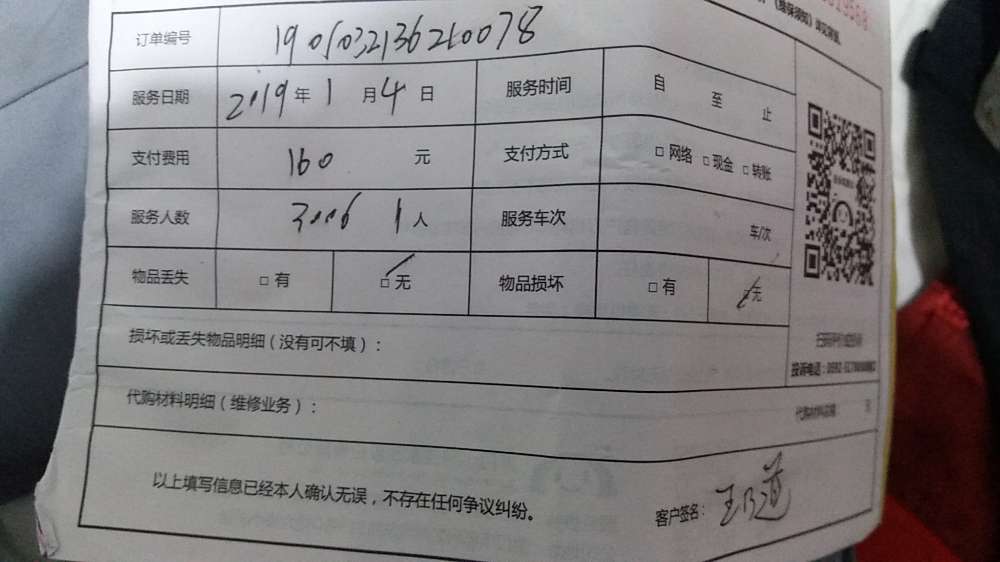 《维保须知》详见背面
订单编号 1901032136210078
服务日期 2019 年 1 月 4 日 服务时间 自 至 止
支付费用 160 元 支付方式 □ 网络 □ 现金 □ 转账
服务人数 1 人 服务车次 车/次
物品丢失 □ 有 □ 无 物品损坏 □ 有 □ 无
损坏或丢失物品明细(没有可不填):
投诉电话:
代购材料明细(维修业务):
代购材料 元
以上填写信息已经本人确认无误,不存在任何争议纠纷。
客户签名:王乃道